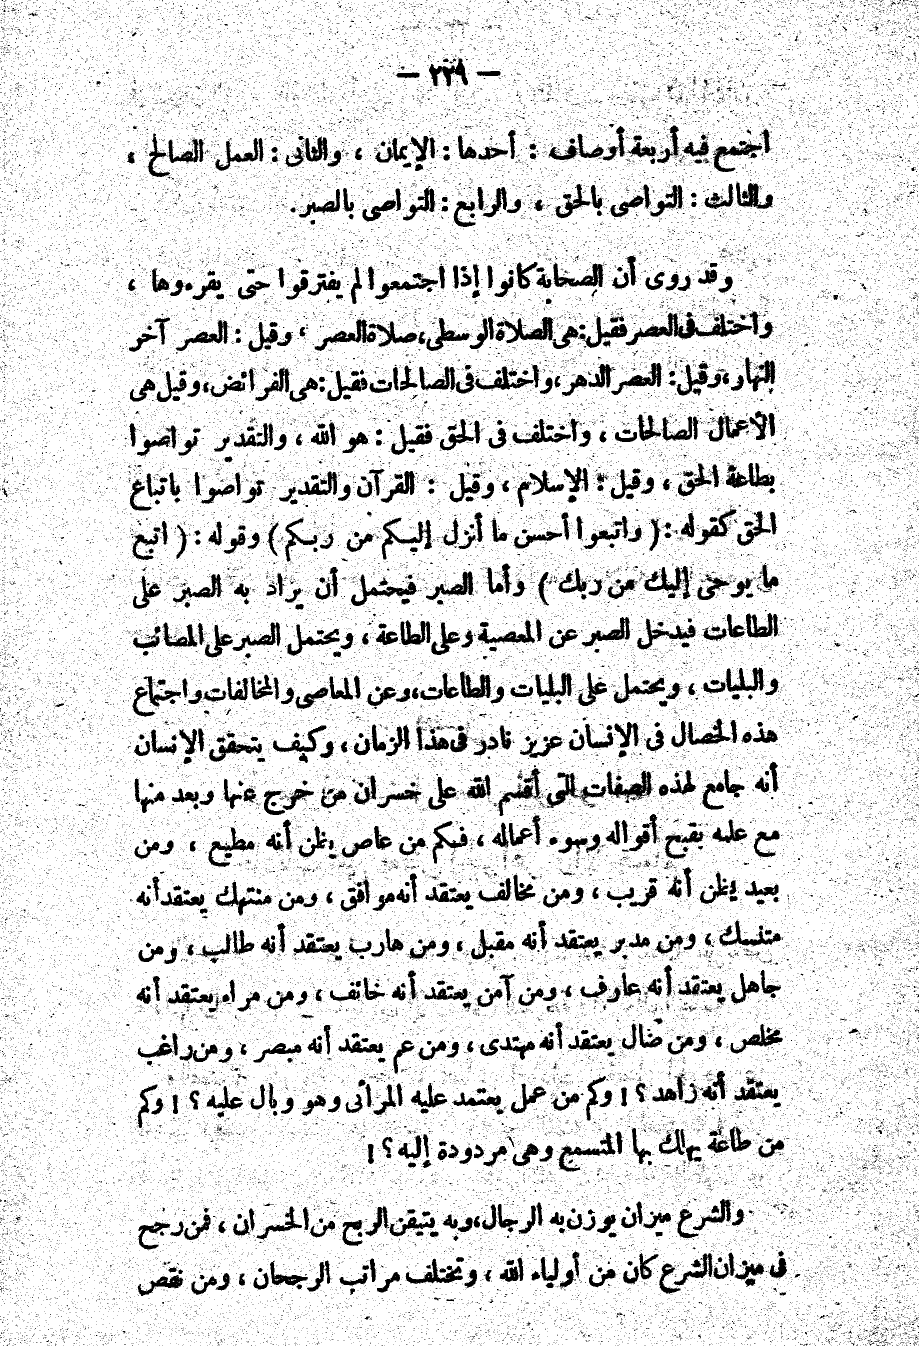 — ٢٢٩ —
اجتمع فيه أربعة أوصاف : أحدها : الإيمان ، والثانى : العمل الصالح ،
والثالث : التواصى بالحق ، والرابع : التواصى بالصبر .
وقد روى أن الصحابة كانوا إذا اجتمعوا لم يفترقوا حتى يقرءوها ،
واختلف فى العصر فقيل : هى الصلاة الوسطى ، صلاة العصر ، وقيل : العصر آخر
النهار ، وقيل : العصر الدهر ، واختلف فى الصالحات فقيل : هى الفرائض ، وقيل هى
الأعمال الصالحات ، واختلف فى الحق فقيل : هو الله ، والتقدير تواصوا
بطاعة الحق ، وقيل : الإسلام ، وقيل : القرآن والتقدير تواصوا باتباع
الحق كقوله : ( واتبعوا أحسن ما أنزل إليكم من ربكم ) وقوله : ( اتبع
ما يوحى إليك من ربك ) وأما الصبر فيحتمل أن يراد به الصبر على
الطاعات فيدخل الصبر عن المعصية وعلى الطاعة ، ويحتمل الصبر على المصائب
والبليات ، ويحتمل على البليات والطاعات ، وعن المعاصى والمخالفات واجتماع
هذه الخصال فى الإنسان عزيز نادر فى هذا الزمان ، وكيف يتحقق الإنسان
أنه جامع لهذه الصفات التى أقسم الله على خسران من خرج عنها وبعد منها
مع علمه بقبح أقواله وسوء أعماله ، فكم من عاص يظن أنه مطيع ، ومن
بعيد يظن أنه قريب ، ومن مخالف يعتقد أنه موافق ، ومن منتهك يعتقد أنه
متنسك ، ومن مدبر يعتقد أنه مقبل ، ومن هارب يعتقد أنه طالب ، ومن
جاهل يعتقد أنه عارف ، ومن آمن يعتقد أنه خائف ، ومن مراء يعتقد أنه
مخلص ، ومن ضال يعتقد أنه مهتدى ، ومن عم يعتقد أنه مبصر ، ومن راغب
يعتقد أنه زاهد ؟ ! وكم من عمل يعتمد عليه المرائى وهو وبال عليه ؟ ! وكم
من طاعة يهلك بها المتسمع وهى مردودة إليه ؟ !
والشرع ميزان يوزن به الرجال ، وبه يتيقن الربح من الخسران ، فمن رجح
فى ميزان الشرع كان من أولياء الله ، وتختلف مراتب الرجحان ، ومن نقص